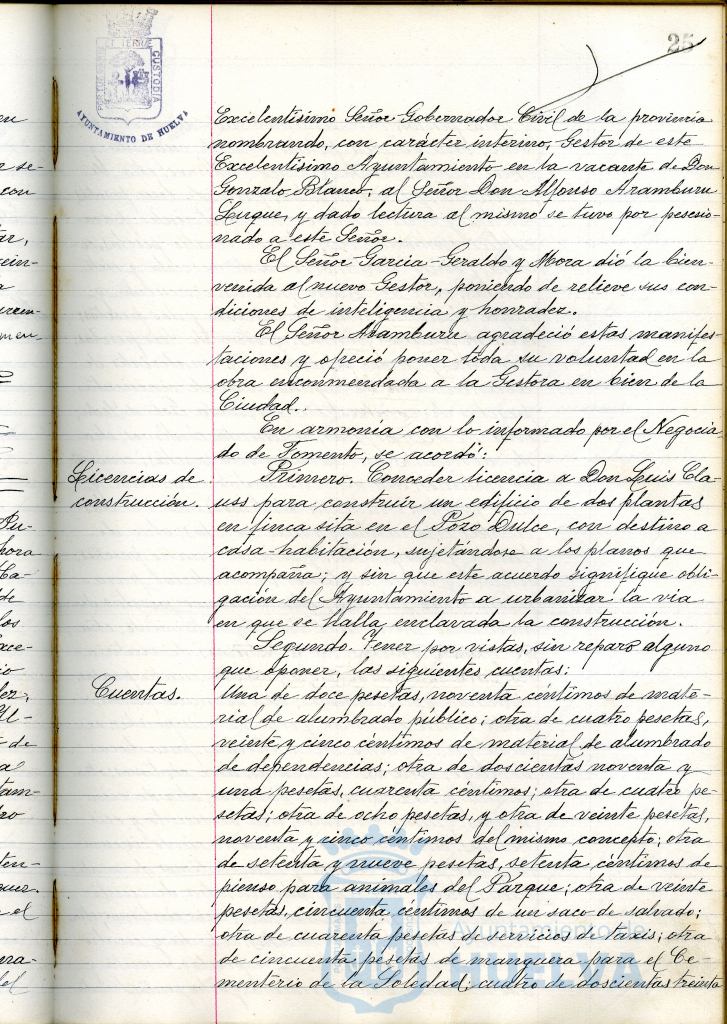 25
AYUNTAMIENTO DE HUELVA
CUSTODIA
Excelentísimo Señor Gobernador Civil de la provincia
nombrando, con carácter interino, Gestor de este
Excelentísimo Ayuntamiento en la vacante de Don
Gonzalo Blanco, al Señor Don Alfonso Aramburu
Luque, y dado lectura al mismo se tuvo por posesio-
nado a este Señor.
El Señor Garcia-Geraldo y Mora dió la bien-
venida al nuevo Gestor, poniendo de relieve sus con-
diciones de inteligencia y honradez.
El Señor Aramburu agradeció estas manifes-
taciones y ofreció poner toda su voluntad en la
obra encomendada a la Gestora en bien de la
Ciudad.
En armonia con lo informado por el Negocia
do de Fomento, se acordó:
Licencias de
construcción.
Primero. Conceder licencia a Don Luis Cla-
uss para construir un edificio de dos plantas
en finca sita en el Pozo Dulce, con destino a
casa-habitación, sujetándose a los planos que
acompaña; y sin que este acuerdo signifique obli-
gación del Ayuntamiento a urbanizar la via
en que se halla enclavada la construcción.
Segundo. Tener por vistas, sin reparo alguno
que oponer, las siguientes cuentas:
Cuentas.
Una de doce pesetas, noventa céntimos de mate-
rial de alumbrado público; otra de cuatro pesetas,
veinte y cinco céntimos de material de alumbrado
de dependencias; otra de doscientas noventa y
una pesetas, cuarenta centimos; otra de cuatro pe-
setas; otra de ocho pesetas, y otra de veinte pesetas,
noventa y cinco céntimos del mismo concepto; otra
de setenta y nueve pesetas, setenta céntimos de
pienso para animales del Parque; otra de veinte
pesetas, cincuenta céntimos de un saco de salvado;
otra de cuarenta pesetas de servicios de taxis; otra
de cincuenta pesetas de manguera para el Ce-
menterio de la Soledad; cuatro de doscientas treinta
Ayuntamiento de
HUELVA